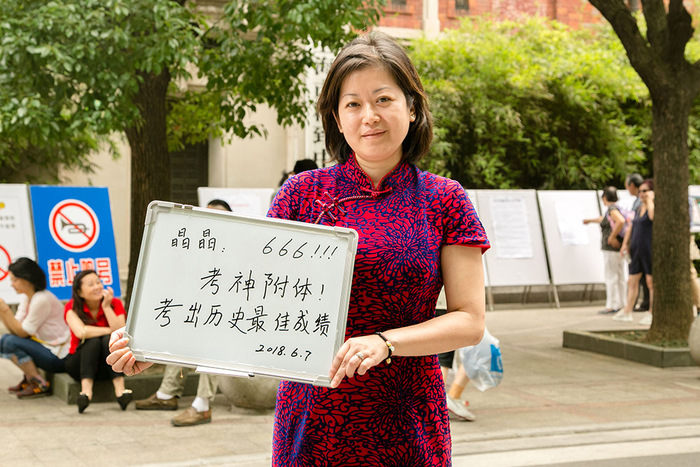 晶晶： 666!!!
考神附体！
考出历史最佳成绩
2018.6.7
禁止鸣号